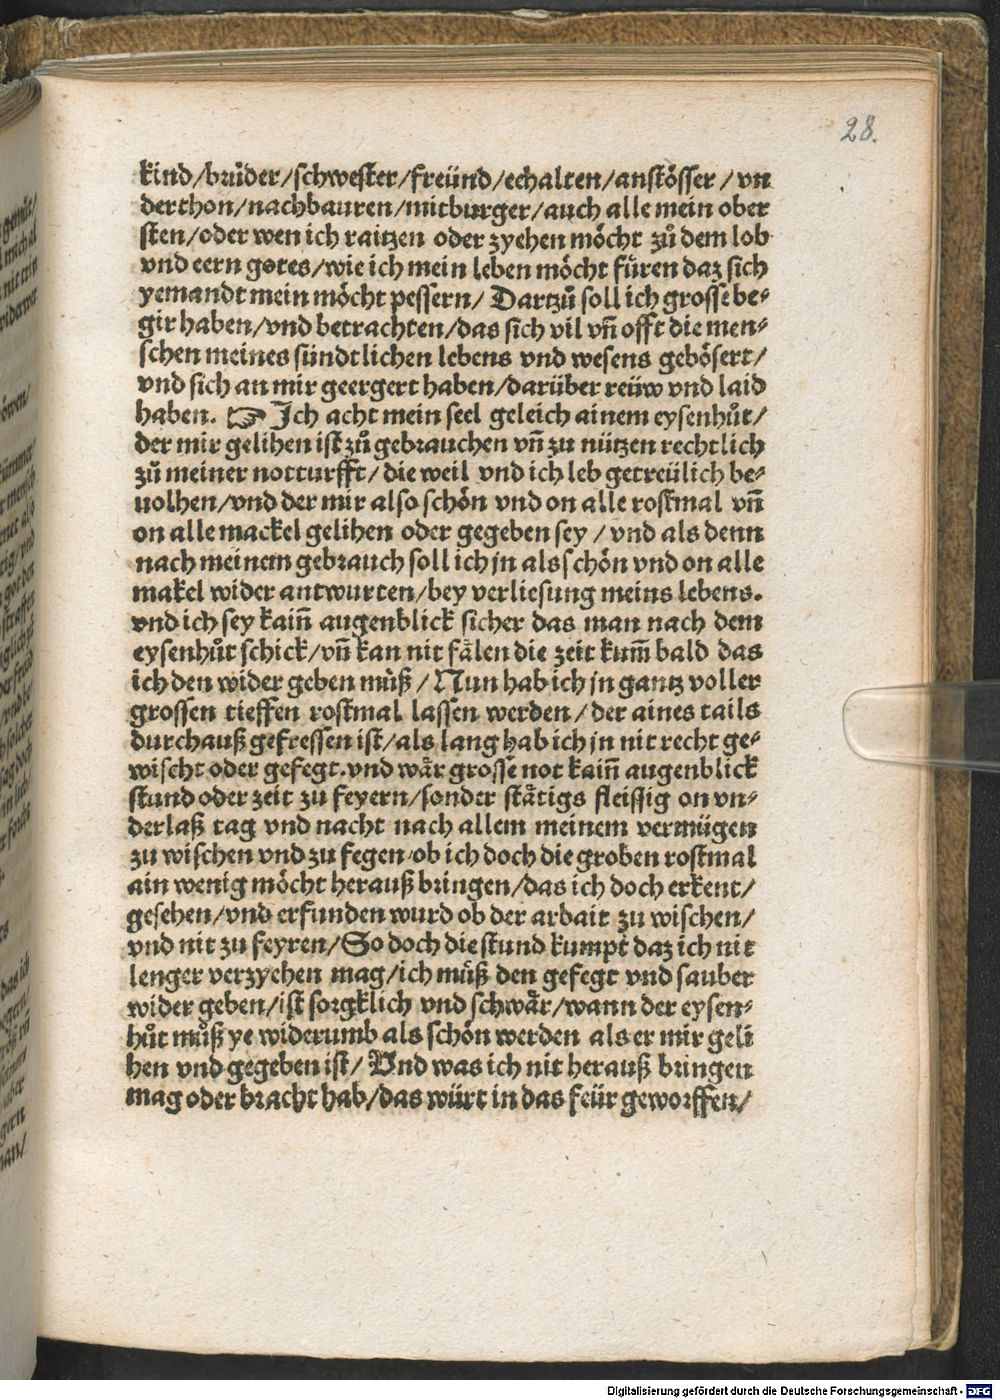 28.
kind/brůder/schwester/freünd/echalten/anstösser/vn
derthon/nachbauren/mitburger/auch alle mein ober
sten/oder wen ich raitzen oder zyehen möcht zů dem lob
vnd eern gotes/wie ich mein leben möcht füren daz sich
yemandt mein möcht pessern/ Dartzů soll ich grosse be⸗
gir haben/vnd betrachten/das sich vil vñ offt die men⸗
schen meines sündtlichen lebens vnd wesens gebösert/
vnd sich an mir geergert haben/darüber reüw vnd laid
haben. ☞ Ich acht mein seel geleich ainem eysenhůt/
der mir gelihen ist zů gebrauchen vñ zu nützen rechtlich
zů meiner notturfft/ die weil vnd ich leb getreülich be⸗
uolhen/vnd der mir also schön vnd on alle rostmal vñ
on alle mackel gelihen oder gegeben sey / vnd als denn
nach meinem gebrauch soll ich jn als schön vnd on alle
makel wider antwurten/bey verliesung meins lebens.
vnd ich sey kaiñ augenblick sicher das man nach dem
eysenhůt schick/vñ kan nit fälen die zeit kum̃ bald das
ich den wider geben můß / Nun hab ich jn gantz voller
grossen tieffen rostmal lassen werden/ der aines tails
durchauß gefressen ist/als lang hab ich jn nit recht ge⸗
wischt oder gefegt.vnd wär grosse not kaiñ augenblick
stund oder zeit zu feyern/sonder stätigs fleissig on vn⸗
derlaß tag vnd nacht nach allem meinem vermügen
zu wischen vnd zu fegen.ob ich doch die groben rostmal
ain wenig möcht herauß bringen/das ich doch erkent/
gesehen/vnd erfunden wurd ob der arbait zu wischen/
vnd nit zu feyren/So doch die stund kumpt daz ich nit
lenger verzyehen mag/ich můß den gefegt vnd sauber
wider geben/ist sorgklich vnd schwär/wann der eysen⸗
hůt můß ye widerumb als schön werden als er mir geli
hen vnd gegeben ist/ Vnd was ich nit herauß bringen
mag oder bracht hab/das würt in das feür geworffen/
Digitalisierung gefördert durch die Deutsche Forschungsgemeinschaft - DFG